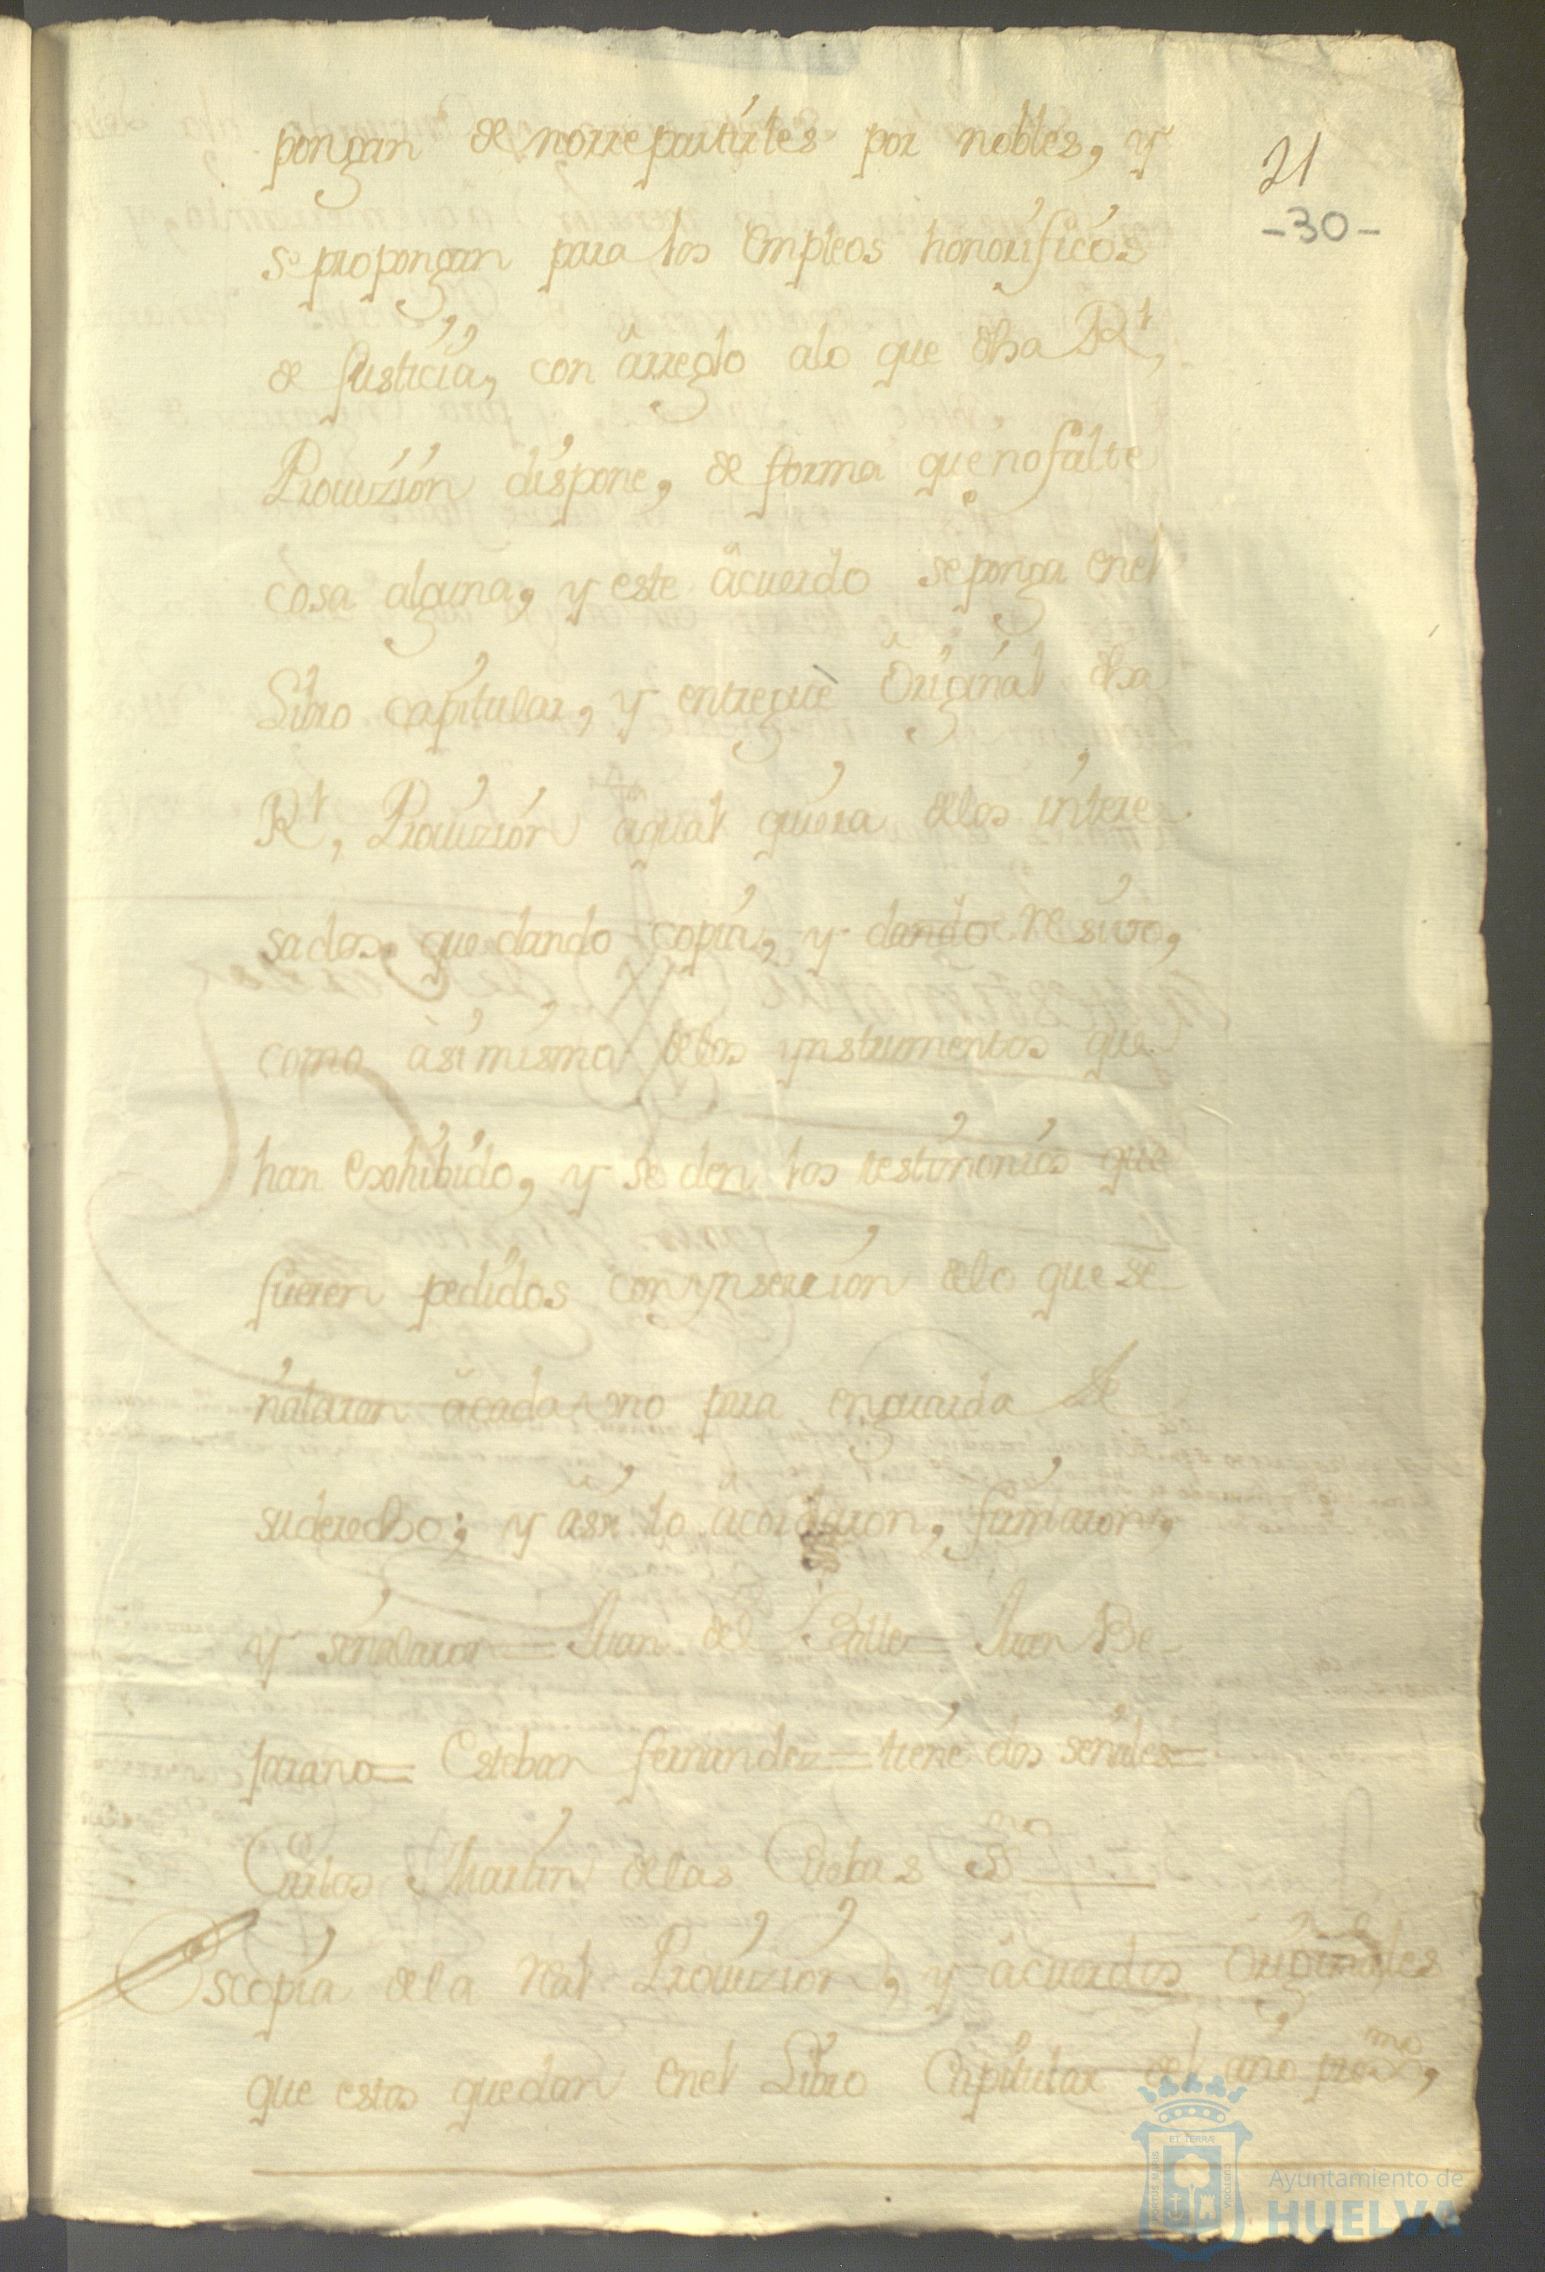 pongan de norrepartirles por nobles, y
21
-30-
se propongan para los Empleos honorificos
de Justicia, con arreglo alo que dha Rl,
Prouizion dispone, de forma que no falte
cosa alguna, y este acuerdo se ponga enel
Libro capitular, y entregue Original dha
Rl, Prouizion aqual quiera delos intere
sados, quedando copia, y dando resivo,
como asi mismo delos ynstrumentos que
han Exohibido, y se den los testimonios que
fueren pedidos con ynsercion delo que se
ñalaren acada uno para enguarda de
suderecho; y asi lo acordaron, firmaron,
y señalaron = Juan del Balle = Juan Be-
jarano = Esteban fernandez = tiene dos señales =
Carlos Martin delas Cuebas Ssmo
Es copia dela real Prouizion, y acuerdos Originales
que estos quedan enel Libro Capitular del año proxmo,
PORTUS MARIS
ET TERRÆ
CUSTODIA
Ayuntamiento de
HUELVA